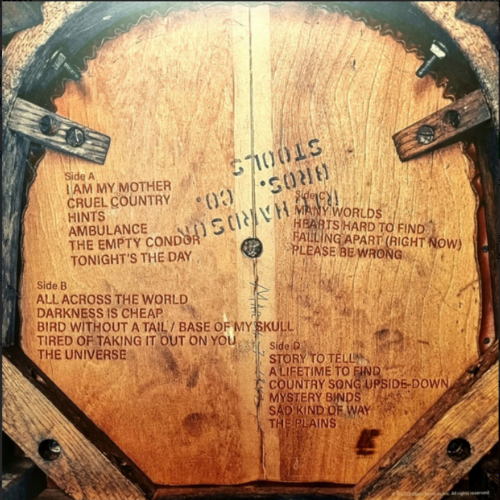 Side A
I AM MY MOTHER
CRUEL COUNTRY
HINTS
AMBULANCE
THE EMPTY CONDOR
TONIGHT'S THE DAY
Side B
ALL ACROSS THE WORLD
DARKNESS IS CHEAP
BIRD WITHOUT A TAIL / BASE OF MY SKULL
TIRED OF TAKING IT OUT ON YOU
THE UNIVERSE
RICHARDSON
BROS. CO.
STOOLS
Side C
MANY WORLDS
HEARTS HARD TO FIND
FALLING APART (RIGHT NOW)
PLEASE BE WRONG
Side D
STORY TO TELL
A LIFETIME TO FIND
COUNTRY SONG UPSIDE-DOWN
MYSTERY BINDS
SAD KIND OF WAY
THE PLAINS
All rights reserved